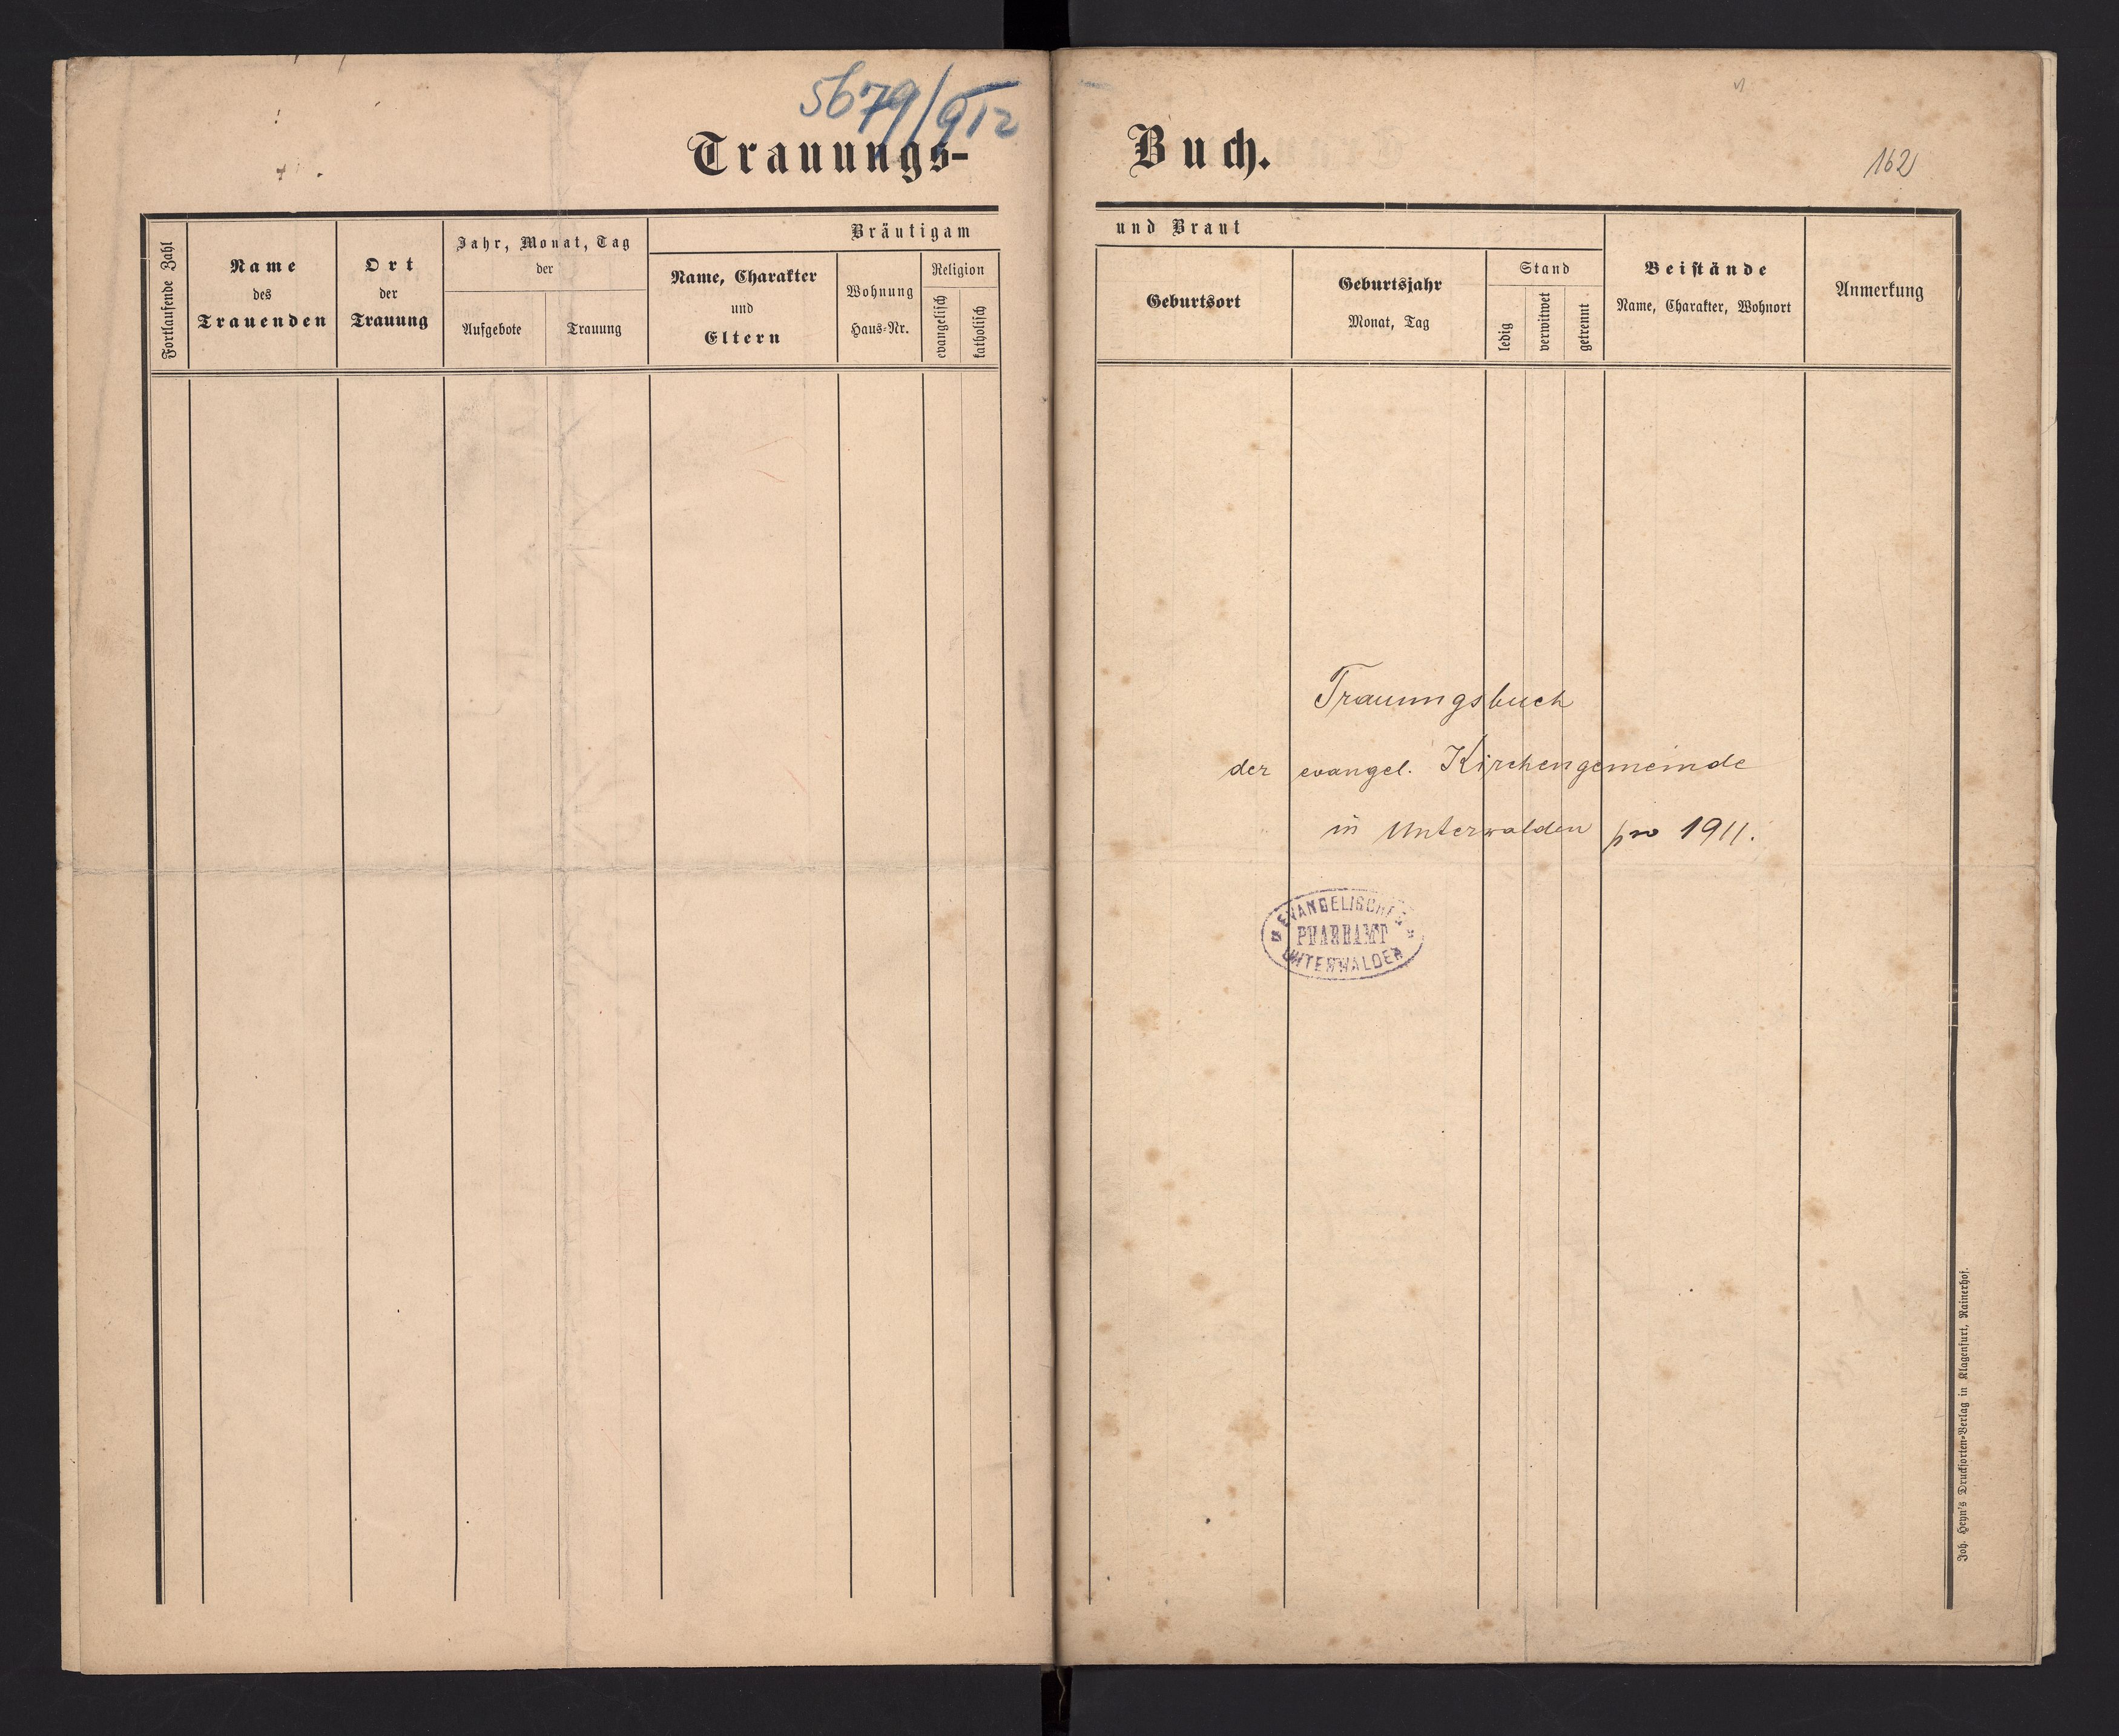 5679/912
Trauungs-
Buch.
162
Fortlaufende Zahl
Name
des
Trauenden
Ort
der
Trauung
Jahr, Monat, Tag
der
Aufgebote
Trauung
Bräutigam
Name, Charakter
und
Eltern
Wohnung
Haus-Nr.
Religion
evangelisch
katholisch
und Braut
Geburtsort
Geburtsjahr
Monat, Tag
Stand
ledig
verwitwet
getrennt
Beistände
Name, Charakter, Wohnort
Anmerkung
Trauungsbuch
der evangel. Kirchengemeinde
in Unterwalden pro 1911.
EVANGELISCHES
PFARRAMT
UNTERWALDEN
Joh. Heyn's Drucksorten-Verlag in Klagenfurt, Rainerhof.